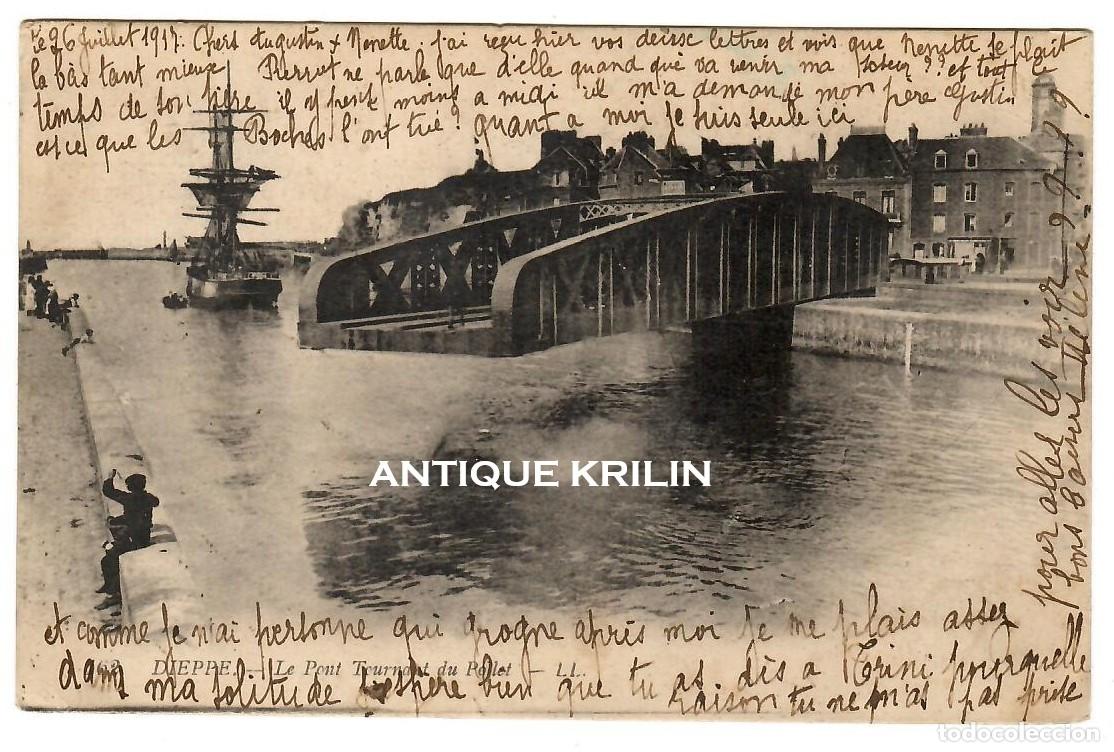 Le 26 Juillet 1917. Chers Augustin & Nenette, j'ai reçu hier vos deusse lettres et vois que Nenette se plait
la bas tant mieux Pierrot ne parle que d'elle quand que va venir ma soeur?? et tout le
temps de son père il y pense moins a midi il m'a demandé mon père Gustin
est ce que les Boches l'ont tué? quant a moi je suis seule ici
et comme je n'ai personne qui grogne après moi je me plais assez
dans ma solitude j'espère bien que tu as dis a Trini pourquelle
raison tu ne m'as pas prise
pour alles les voir
bons baisers Hélène
68 DIEPPE. — Le Pont Tournant du Pollet — LL.
ANTIQUE KRILIN
todocoleccion